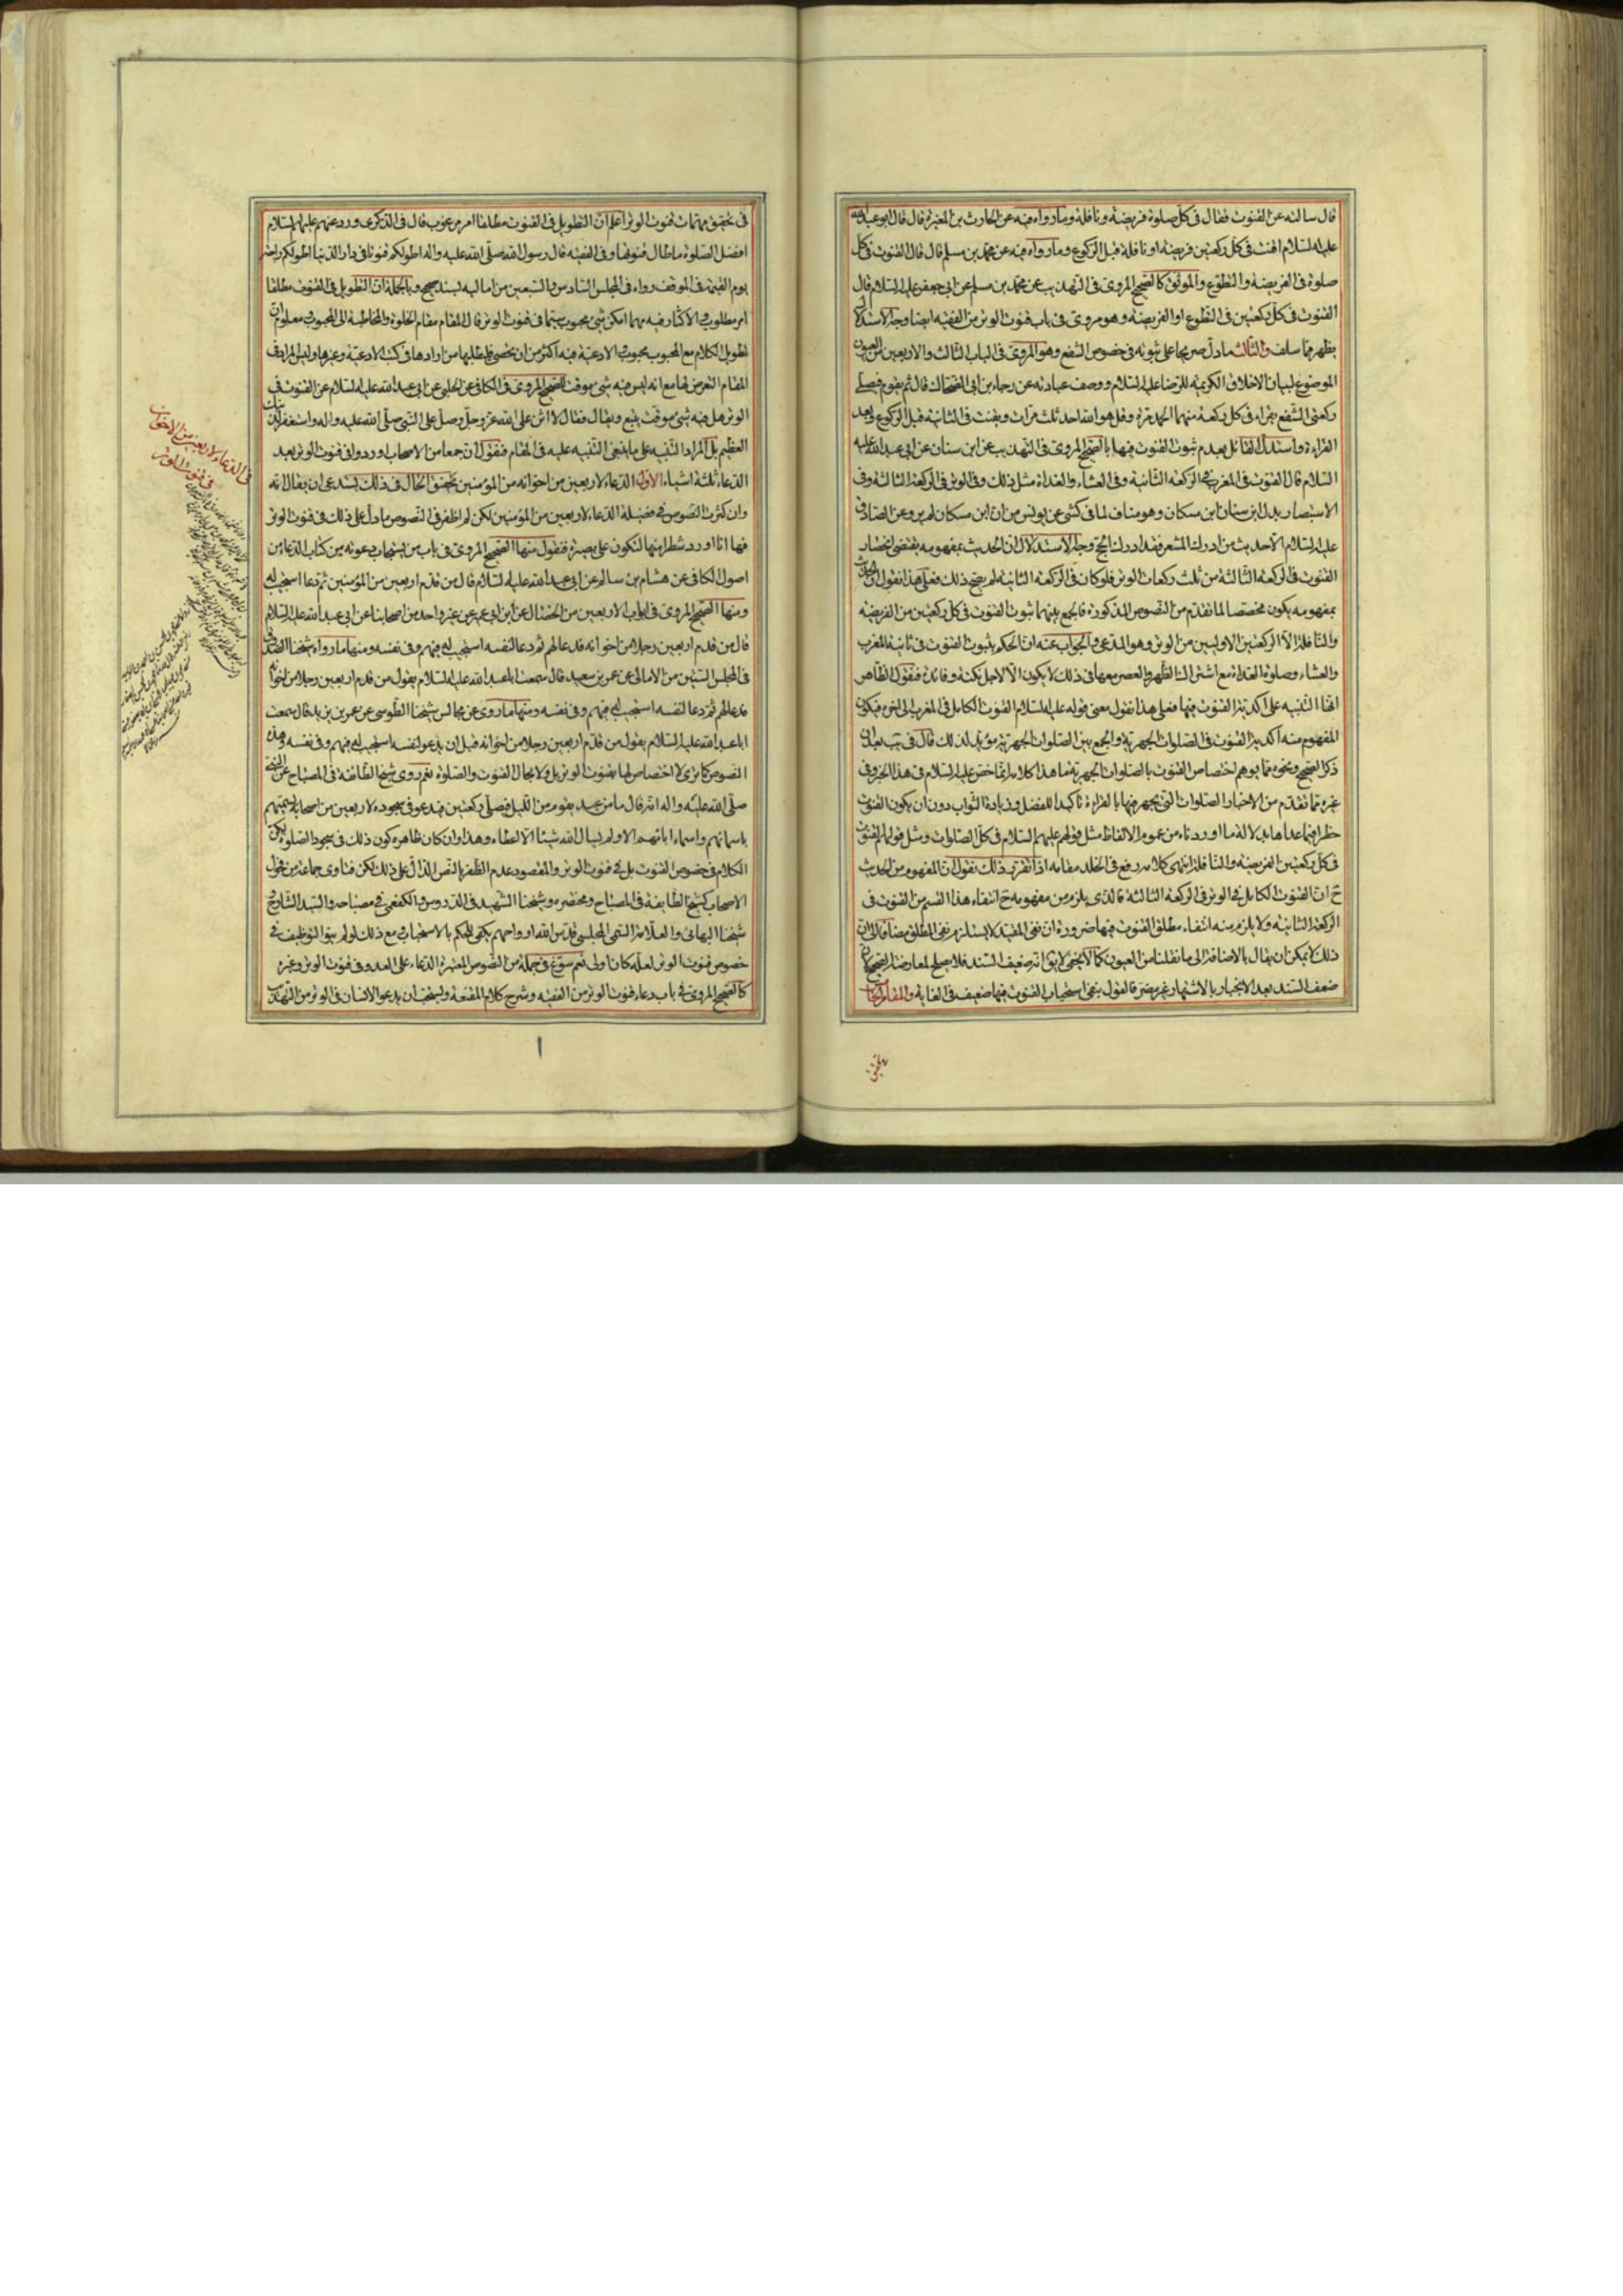 قال سالته عن القنوت فقال فى كل صلوة فريضة ونافلة وما رواه فيه عن الحارث بن المغيرة قال قال ابو عبد الله
عليه السلام اقنت فى كل ركعتين فريضة او نافلة قبل الركوع وما رواه فيه عن محمد بن مسلم قال قال القنوت فى كل
صلوة فى الفريضة والتطوع والموثق كالصحيح المروى فى التهذيب عن محمد بن مسلم عن ابى جعفر عليه السلام قال
القنوت فى كل ركعتين فى التطوع او الفريضة وهو مروى فى باب قنوت الوتر من الفقيه ايضا وجه الاستدلال
يظهر مما سلف والثالث ما دل صريحا على ثبوته فى خصوص الشفع وهو المروى فى الباب الثالث والاربعين من العيون
الموضوع لبيان الاخلاق الكريمة للرضا عليه السلام ووصف عبادته عن رجاء بن ابى الضحاك قال ثم يقوم فيصلى
ركعتى الشفع يقراء فى كل ركعة منهما الحمد مرة وقل هو الله احد ثلث مرات ويقنت فى الثانية قبل الركوع وبعد
القراءة واستدل القائل بعدم ثبوت القنوت فيها بالصحيح المروى فى التهذيب عن ابن سنان عن ابى عبد الله عليه
السلام قال القنوت فى المغرب فى الركعة الثانية وفى العشاء والغداة مثل ذلك وفى الوتر فى الركعة الثالثة وفى
الاستبصار بدل ابن سنان ابن مسكان وهو مناف لما فى كشى عن يونس من ان ابن مسكان لم يرو عن الصادق
عليه السلام الا حديث من ادرك المشعر فقد ادرك الحج وجه الاستدلال ان الحديث بمفهومه يقتضى انحصار
القنوت فى الركعة الثالثة من ثلث ركعات الوتر فلو كان فى الركعة الثانية لم يصح ذلك فعلى هذا نقول ان الحديث
بمفهومه يكون مخصصا لما تقدم من النصوص المذكورة فالجمع بينهما ثبوت القنوت فى كل ركعتين من الفريضة
والنافلة الا الركعتين الاوليين من الوتر وهو المدعى والجواب عنه ان الحكم بثبوت القنوت فى ثانية المغرب
والعشاء وصلوة الغداة مع اشتراك الظهر والعصر معها فى ذلك لا يكون الا لاجل نكتة وفائدة فنقول الظاهر
انها التنبيه على اكدية القنوت فيها فعلى هذا نقول معنى قوله عليه السلام القنوت الكامل فى المغرب الى اخره فيكون
المفهوم منه اكدية القنوت فى الصلوات الجهرية والجمع بين الصلوات الجهرية مؤيد لذلك قال فى يب بعد ان
ذكر الصحيح ونحوه مما يوهم اختصاص القنوت بالصلوات الجهرية ما هذا كلامه انما خص عليه السلام فى هذا الخبر وفى
غيره مما تقدم من الاخبار الصلوات التى يجهر فيها بالقراءة تاكيدا للفضل وزيادة الثواب دون ان يكون القنوت
حظرا فيما عداها بدلالة ما اوردناه من عموم الالفاظ مثل قولهم عليهم السلام فى كل الصلوات ومثل قولهم القنوت
فى كل ركعتين الفريضة والنافلة انتهى كلامه رفع فى الخلد مقامه اذا تقرر ذلك نقول ان المفهوم من الحديث
ح ان القنوت الكامل فى الوتر فى الركعة الثالثة فالذى يلزم من مفهومه ح انتفاء هذا القسم من القنوت فى
الركعة الثانية ولا يلزم منه انتفاء مطلق القنوت فيها ضرورة ان نفى المقيد لا يستلزم نفى المطلق مضافا الى ان
ذلك لا يمكن ان يقال بالاضافة الى ما نقلنا من العيون كما لا يخفى لا يق انه ضعيف السند فلا يصلح لمعارضة الصحيح لان
ضعف السند بعد الانجبار بالاشتهار غير مضر فالقول بنفى استحباب القنوت فيها ضعيف فى الغاية والمقام
فى تحقيق
فى تحقيق مهمات قنوت الوتر اعلم ان التطويل فى القنوت مطلقا امر مرغوب قال فى الذكرى ورد عنهم عليهم السلام
افضل الصلوة ما طال قنوتها وفى الفقيه قال رسول الله صلى الله عليه واله اطولكم قنوتا فى دار الدنيا اطولكم راحة
يوم القيمة فى الموقف رواه فى المجلس السادس والتسعين من اماليه بسند صحيح وبالجملة ان التطويل فى القنوت مطلقا
امر مطلوب والاكثار فيه مهما امكن شئ محبوب سيما فى قنوت الوتر فان المقام مقام الخلوة والمخاطبة الى المحبوب ومعلوم ان
تطويل الكلام مع المحبوب محبوب والادعية فيه اكثر من ان يحصى فليطلبها من ارادها فى كتب الادعية وغيرها وليس المراد فى
المقام التعرض لها مع انه ليس فيه شئ موقت للصحيح المروى فى الكافى عن الحلبى عن ابى عبد الله عليه السلام عن القنوت فى
الوتر هل فيه شئ موقت يتبع ويقال فقال لا اثن على الله عز وجل وصل على النبى صلى الله عليه واله واستغفر لذنبك
العظيم بل المراد التنبيه على ما ينبغى التنبيه عليه فى المقام فنقول ان جمعا من الاصحاب اوردوا فى قنوت الوتر بعد
الدعاء ثلثة اشياء الاول الدعاء لاربعين من اخوانه من المؤمنين تحقيق الحال فى ذلك يستدعى ان يقال انه
وان كثرت النصوص فى فضيلة الدعاء لاربعين من المؤمنين لكن لم اظفر فى النصوص ما دل على ذلك فى قنوت الوتر
فها انا اورد شطرا منها لتكون على بصيرة فنقول منها الصحيح المروى فى باب من يستجاب دعوته من كتاب الدعاء من
اصول الكافى عن هشام بن سالم عن ابى عبد الله عليه السلام قال من قدم اربعين من المؤمنين ثم دعا استجيب له
ومنها الصحيح المروى فى ابواب الاربعين من الخصال عن ابن ابى عمير عن غير واحد من اصحابنا عن ابى عبد الله عليه السلام
قال من قدم اربعين رجلا من اخوانه فدعا لهم ثم دعا لنفسه استجيب له فيهم وفى نفسه ومنها ما رواه شيخنا الصدوق
فى المجلس الستين من الامالى عن عمر بن سعيد قال سمعت ابا عبد الله عليه السلام يقول من قدم اربعين رجلا من اخوانه
فدعا لهم ثم دعا لنفسه استجيب له فيهم وفى نفسه ومنها ما روى عن مجالس شيخنا الطوسى عن عمر بن يزيد قال سمعت
ابا عبد الله عليه السلام يقول من قدم اربعين رجلا من اخوانه قبل ان يدعو لنفسه استجيب له فيهم وفى نفسه وهذه
النصوص كما ترى لا اختصاص لها بقنوت الوتر بل ولا بحال القنوت والصلوة نعم روى شيخ الطائفة فى المصباح عن النبى
صلى الله عليه واله انه قال ما من عبد يقوم من الليل فيصلى ركعتين فيدعو فى سجوده لاربعين من اصحابه يسميهم
باسمائهم واسماء ابائهم الا ولم يسال الله شيئا الا اعطاه وهذا وان كان ظاهره كون ذلك فى سجود الصلوة لكن
الكلام فى خصوص القنوت بل فى قنوت الوتر والمقصود عدم الظفر بالنص الدال على ذلك لكن فتاوى جماعة من فحول
الاصحاب كشيخ الطايفة فى المصباح ومختصره وشيخنا الشهيد فى الدروس والكفعمى فى مصباحه والسيد الشارح
شيخنا البهائى والعلامة التقى المجلسى قدس الله ارواحهم يكفى للحكم بالاستحباب مع ذلك لو لم ينو التوظيف فى
خصوص قنوت الوتر لعله كان اولى نعم سوغ فى جملة من النصوص المعتبرة الدعاء على العدو فى قنوت الوتر وغيره
كالصحيح المروى فى باب دعاء قنوت الوتر من الفقيه وشرح كلام المقنعة ويستحب ان يدعو الانسان فى الوتر من التهذيب
فى الدعاء لاربعين من الاخوان
فى قنوت الوتر